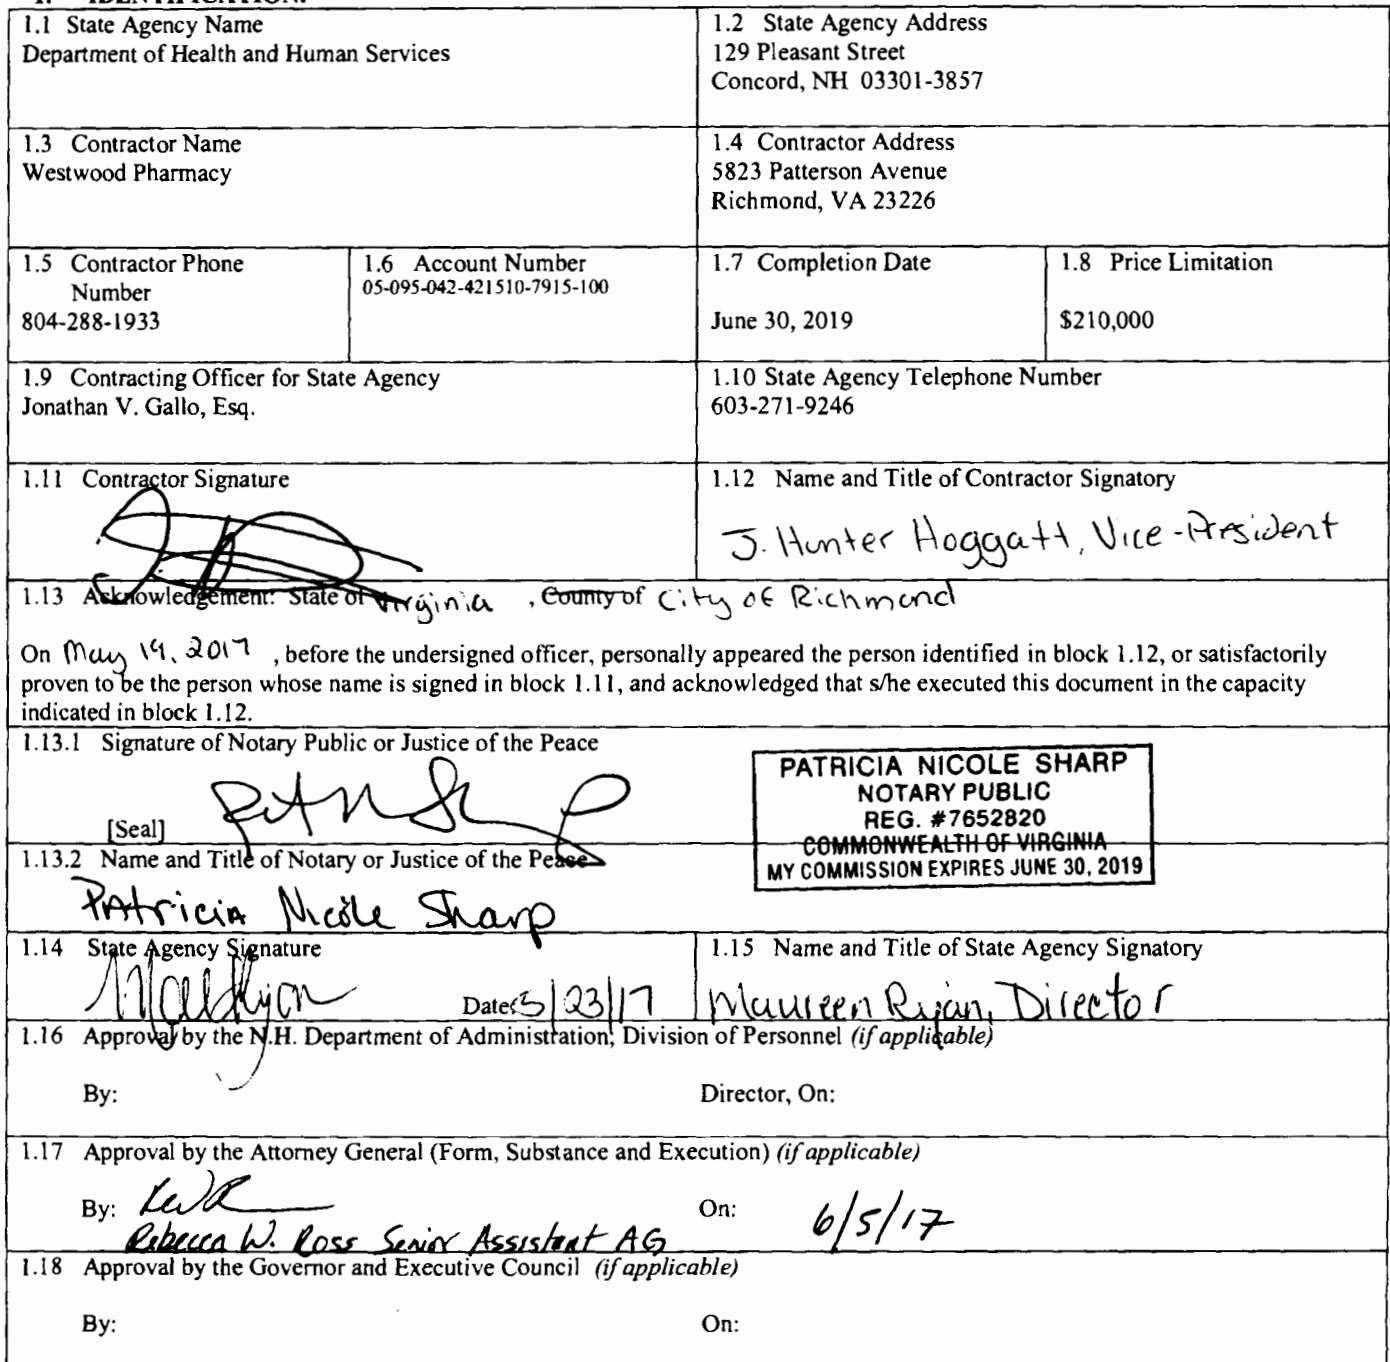 1. IDENTIFICATION.
1.1 State Agency Name
Department of Health and Human Services
1.2 State Agency Address
129 Pleasant Street
Concord, NH 03301-3857
1.3 Contractor Name
Westwood Pharmacy
1.4 Contractor Address
5823 Patterson Avenue
Richmond, VA 23226
1.5 Contractor Phone
Number
804-288-1933
1.6 Account Number
05-095-042-421510-7915-100
1.7 Completion Date
June 30, 2019
1.8 Price Limitation
$210,000
1.9 Contracting Officer for State Agency
Jonathan V. Gallo, Esq.
1.10 State Agency Telephone Number
603-271-9246
1.11 Contractor Signature
1.12 Name and Title of Contractor Signatory
J. Hunter Hoggatt, Vice-President
1.13 Acknowledgement: State of Virginia , County of City of Richmond
On May 19, 2017 , before the undersigned officer, personally appeared the person identified in block 1.12, or satisfactorily
proven to be the person whose name is signed in block 1.11, and acknowledged that s/he executed this document in the capacity
indicated in block 1.12.
1.13.1 Signature of Notary Public or Justice of the Peace
[Seal]
PATRICIA NICOLE SHARP
NOTARY PUBLIC
REG. #7652820
COMMONWEALTH OF VIRGINIA
MY COMMISSION EXPIRES JUNE 30, 2019
1.13.2 Name and Title of Notary or Justice of the Peace
Patricia Nicole Sharp
1.14 State Agency Signature
Date: 5/23/17
1.15 Name and Title of State Agency Signatory
Maureen Ryan, Director
1.16 Approval by the N.H. Department of Administration, Division of Personnel (if applicable)
By:
Director, On:
1.17 Approval by the Attorney General (Form, Substance and Execution) (if applicable)
By:
On: 6/5/17
Rebecca W. Ross Senior Assistant AG
1.18 Approval by the Governor and Executive Council (if applicable)
By:
On: